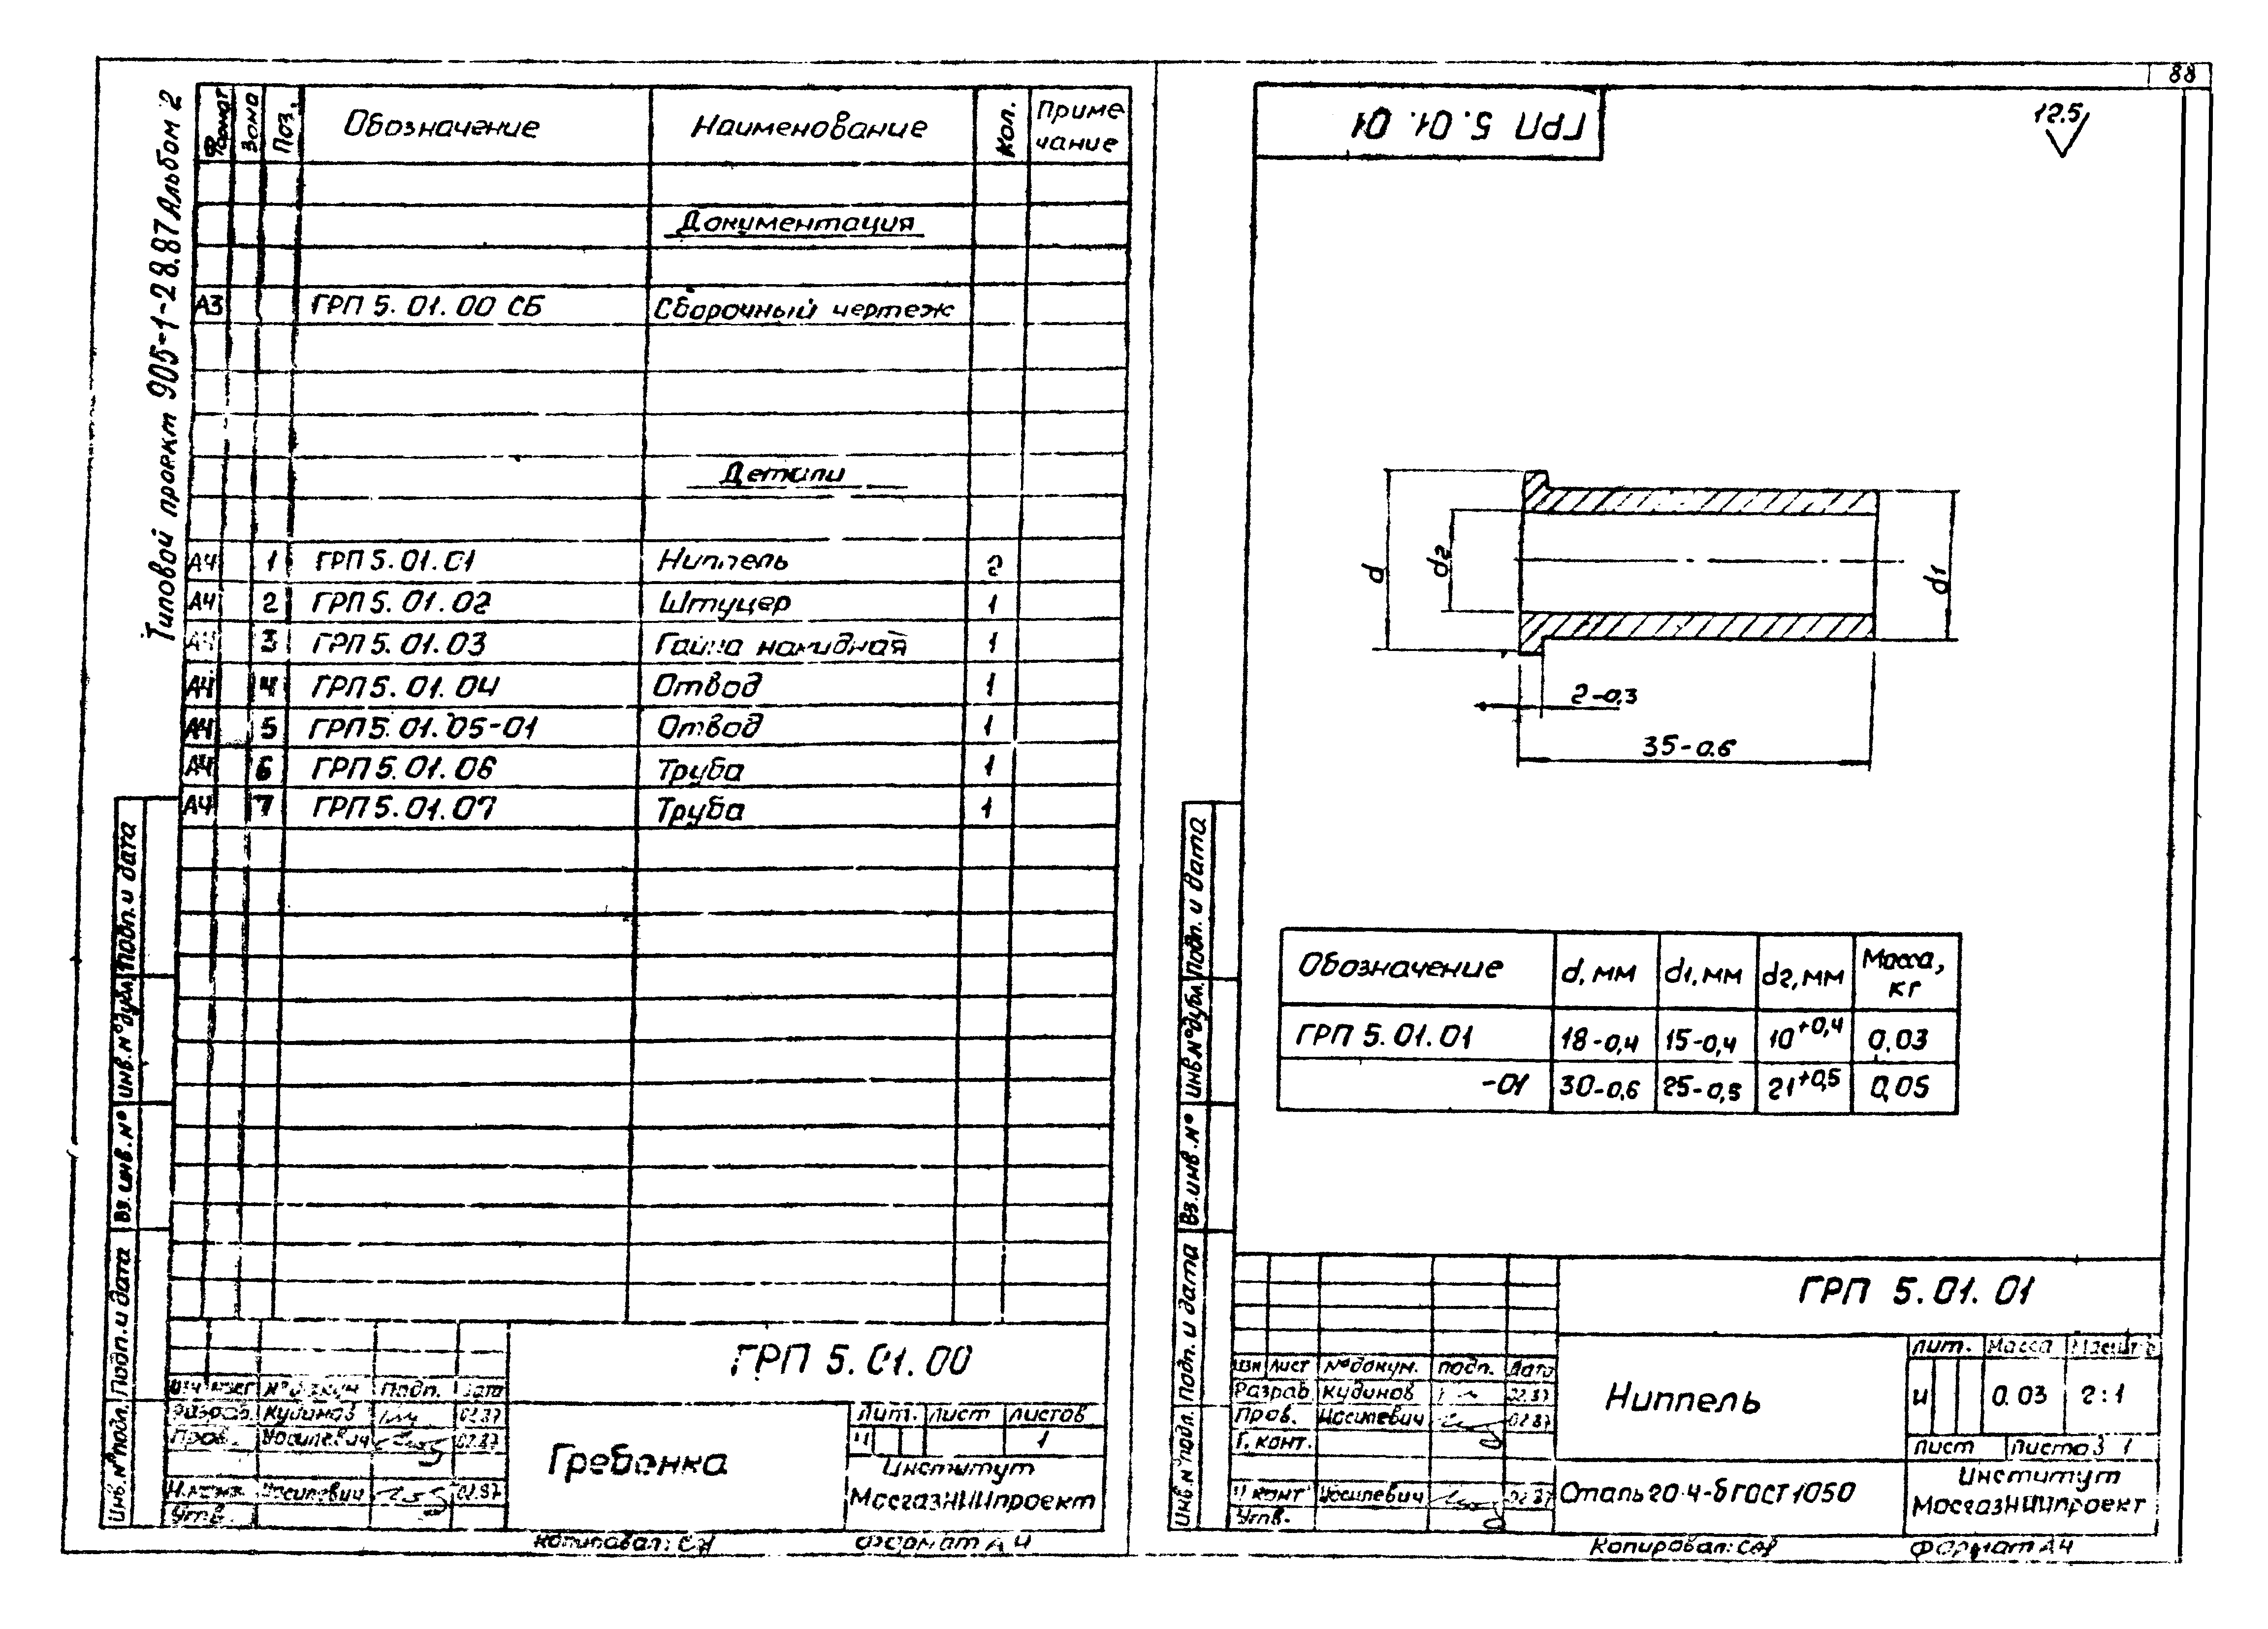 88
Типовой проект 905-1-28.87 Альбом 2
Формат Зона Поз. Обозначение Наименование Кол. Приме
чание
Документация
А3 ГРП 5.01.00 СБ Сборочный чертеж
Детали
А4 1 ГРП 5.01.01 Ниппель 2
А4 2 ГРП 5.01.02 Штуцер 1
А4 3 ГРП 5.01.03 Гайка накидная 1
А4 4 ГРП 5.01.04 Отвод 1
А4 5 ГРП 5.01.05-01 Отвод 1
А4 6 ГРП 5.01.06 Труба 1
А4 7 ГРП 5.01.07 Труба 1
Инв.№ подл. Подп. и дата Вз. инв.№ инв.№ дубл. Подп. и дата
ГРП 5.01.00
№ докум. Подп. Дата
Разраб. Кудинов 02.87
Пров. 02.87
Н.конт. 02.87
Утв.
Гребенка
Лит. Лист Листов
И 1
Институт
МосгазНИИпроект
Копировал:
Формат А4
ГРП 5.01.01
12.5
d d2 d1
2-0,3
35-0.6
Обозначение d, мм d1, мм d2, мм Масса,
кг
ГРП 5.01.01 18-0,4 15-0,4 10+0,4 0,03
-01 30-0,6 25-0,5 21+0,5 0,05
Инв.№ подл. Подп. и дата Вз.инв.№ инв.№ дубл. Подп. и дата
ГРП 5.01.01
Изм Лист № докум. подп. Дата
Разраб. Кудинов 02.87
Пров. 02.87
Т. конт.
Н конт 02.87
Утв.
Ниппель
Лит. Масса Масштаб
И 0.03 2:1
Лист Листов 1
Сталь 20-4-б ГОСТ 1050
Институт
МосгазНИИпроект
Копировал:
Формат А4